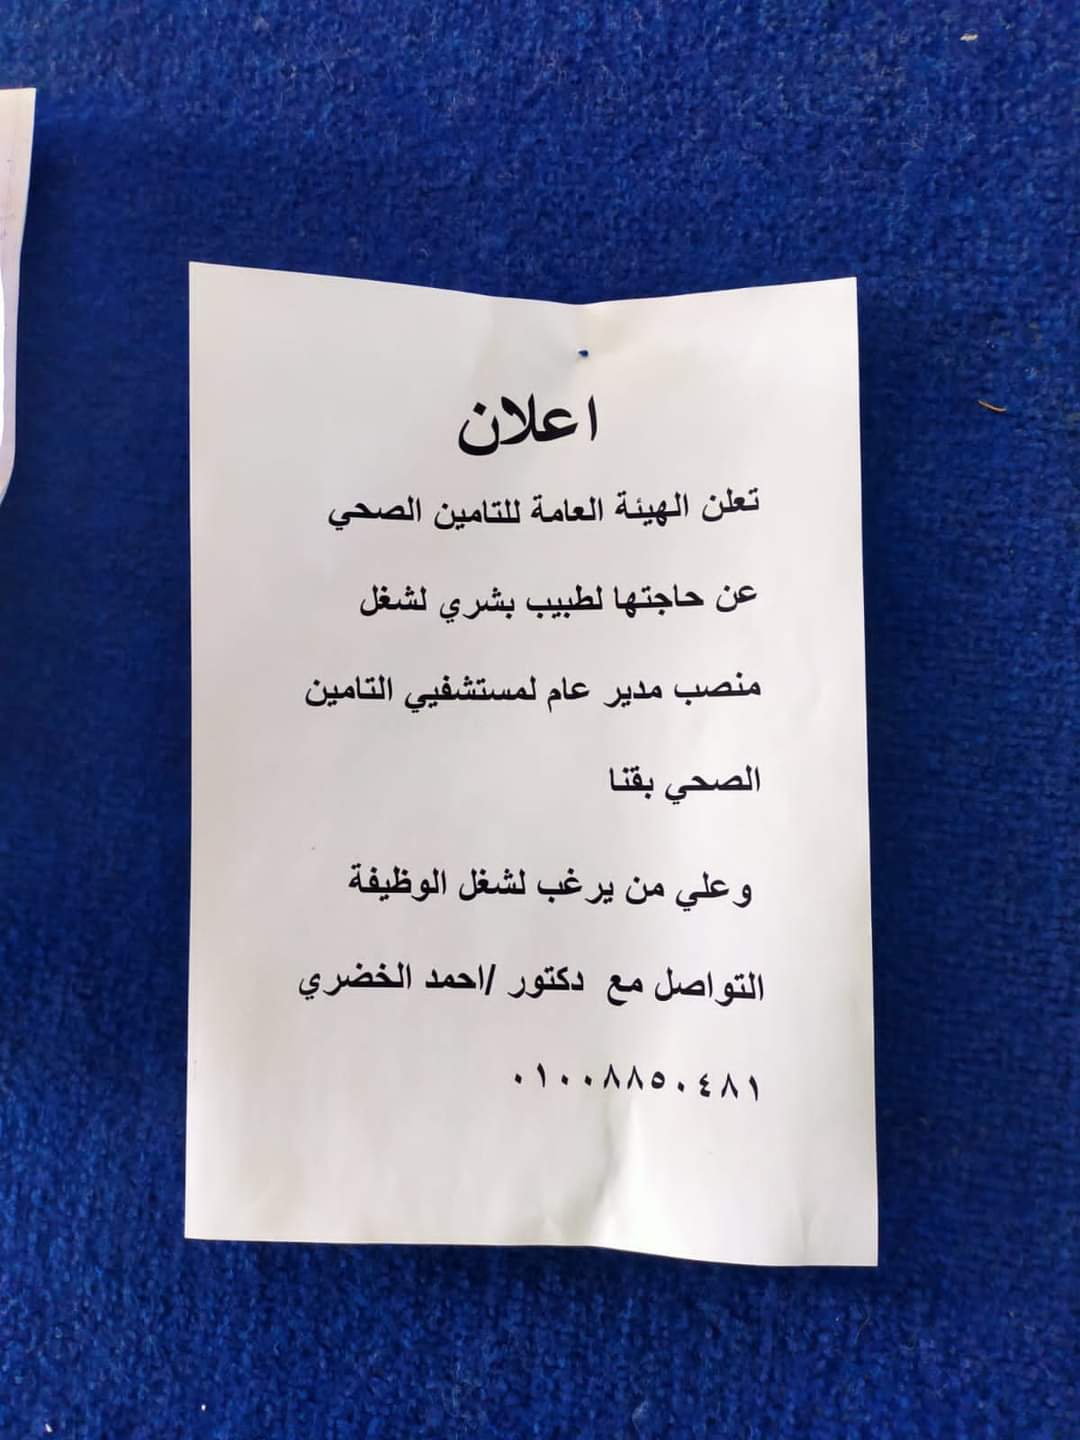 اعلان
تعلن الهيئة العامة للتامين الصحي
عن حاجتها لطبيب بشري لشغل
منصب مدير عام لمستشفيي التامين
الصحي بقنا
وعلي من يرغب لشغل الوظيفة
التواصل مع دكتور /احمد الخضري
٠١٠٠٨٨٥٠٤٨١